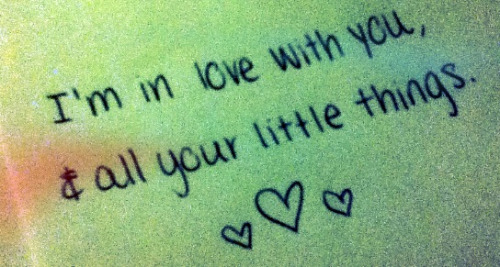 I'm in love with you,
& all your little things.